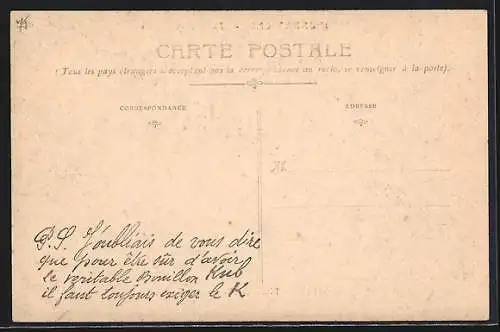 75
CARTE POSTALE
(Tous les pays étrangers n'acceptant pas la correspondance au recto, se renseigner à la poste).
CORRESPONDANCE
ADRESSE
P.S. J'oubliais de vous dire
que pour être sûr d'avoir
le veritable Bouillon Kub
il faut toujours exiger le K